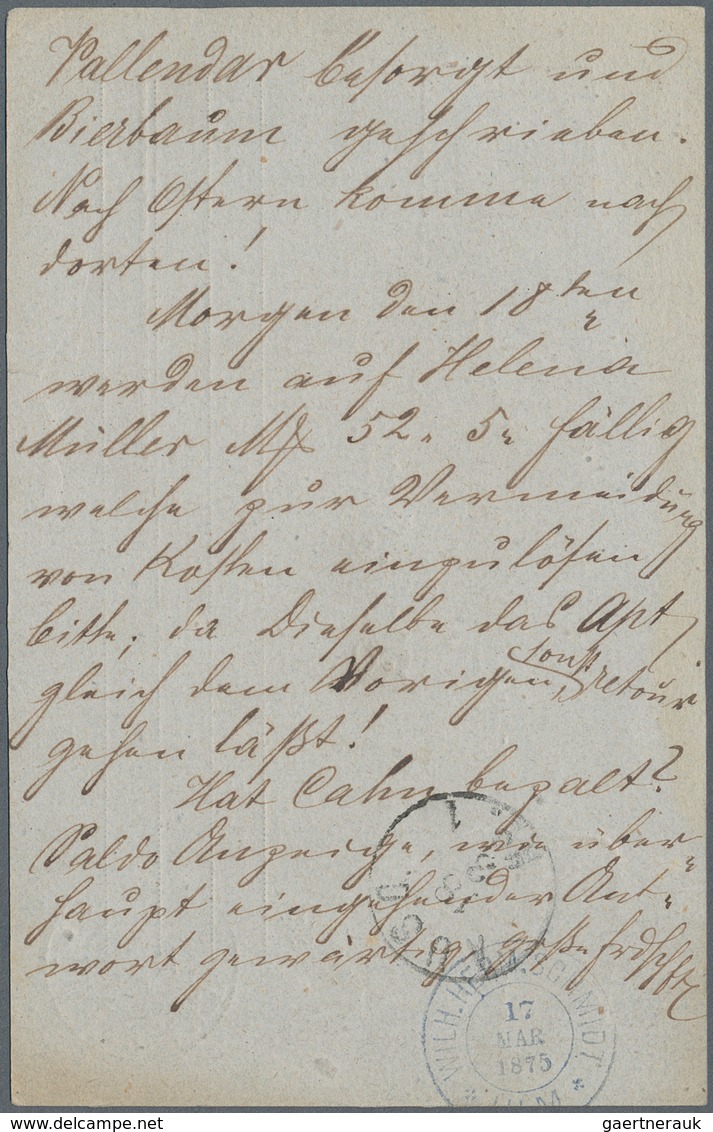 Vallendar besorgt und
Bierbaum geschrieben.
Nach Ostern komme nach
dorten!
Morgen den 18ten
werden auf Helena
Müller Mk 52. 5. fällig
welche zur Vermeidung
von Kosten einzulösen
bitte, da Dieselbe das Apt
sonst
gleich dem Vorigen, retour
gehen läßt!
Hat Cahn bezalt?
Saldo Anzeige, wie über-
haupt eingehender Ant-
wort gewärtig
WILH. HERM. SCHMIDT
17
MAR
1875
gaertnerauk